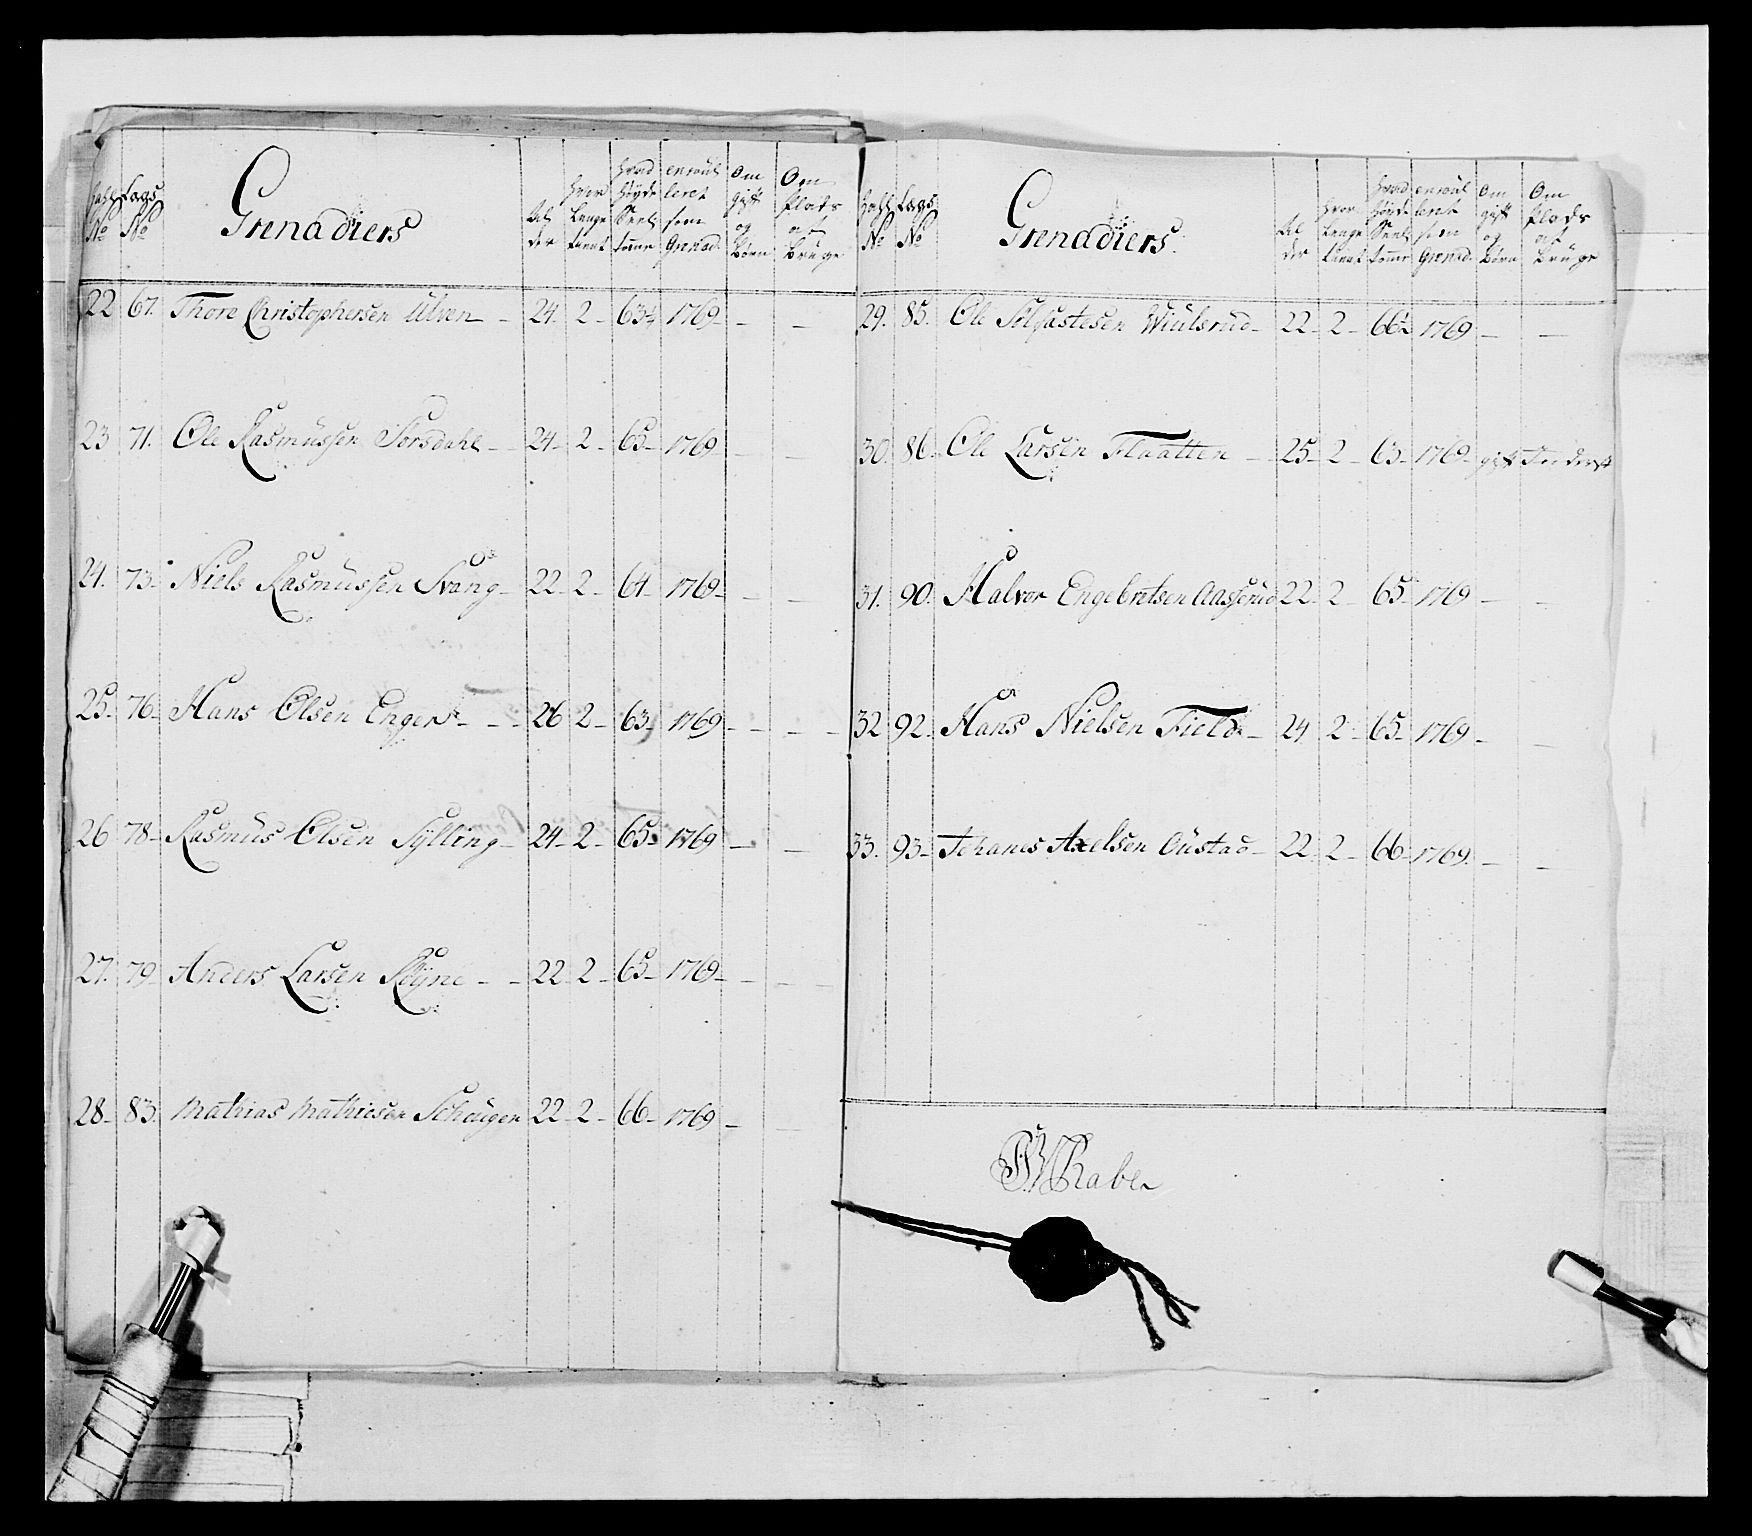 Tahl No Lags No Grenadiers Al der Hvor Længe tient Hvad Høyde Sine Tomr enroul leret som Grenad. Om gift og Børn Om Plads at Bruge
22 67. Thore Christophersen Ulven 24. 2 - 63¼ 1769 - - -
23 71. Ole Rasmussen Sørsdahl - 24 - 2 - 65 - 1769 - -
24. 73 - Niels Rasmussen Svang - 22 - 2 - 64 - 1769 - - -
25 - 76 - Hans Olsen Enger - - - 26 2 - 63 - 1769 - - -
26 78 - Rasmus Olsen Sylling - 24 - 2 - 65 - 1769 - -
27. 79 - Anders Larsen Røyne - - 22 2 - 65 - 1769 - - -
28 - 83. Mathias Mathiesen Schougen 22 2 - 66 - 1769 - -
Tahl No Lags No Grenadiers. Al der Hvor Længe tient Hvad Høyde Tomr enroul leret som Grenad. Om gift og Børn Om Plads at Bruge
29. 85. Ole Solfastesen Wiulsrud - 22 - 2 - 66½ 1769 - -
30. 86 - Ole Larsen Flaatten - 25 - 2 - 63 - 1769 - gift
31. 90. Halvor Engebretsen Aasserud 22 2 - 65 - 1769 - -
32 92 - Hans Nielsen Field - 24 2 - 65 - 1769 - -
33. 93 - Johanes Axelsen Oustad - 22 2 - 66 - 1769. - -
Rabe